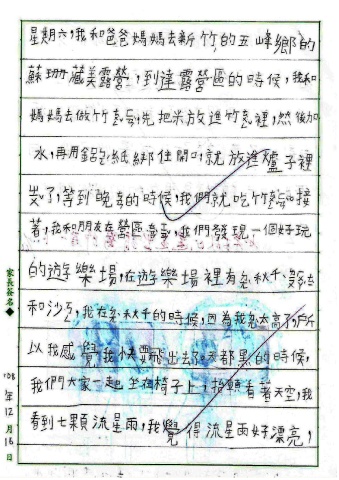 星期六,我和爸爸媽媽去新竹的五峰鄉的
蘇珊藏美露營,到達露營區的時候,我和
媽媽去做竹ㄊㄨㄥˇ,先把米放進竹ㄊㄨㄥˇ裡,然後加
水,再用鋁ㄅㄛˊ紙綁住開口就放進爐子裡
了,等到晚的時候,我們就吃竹ㄊㄨㄥˇ接
著,我和朋友在營區,我們發現一個好玩
的遊樂場,在遊樂場裡有秋千、
和沙,我在秋千的時候,因為我太高了,所
以我感覺我快要飛出去了天都黑的時候,
我們大家一起坐在椅子上,抬頭看著天空,我
看到七顆流星雨,我覺得流星雨好漂亮,
家長簽名◆
108年12月16日